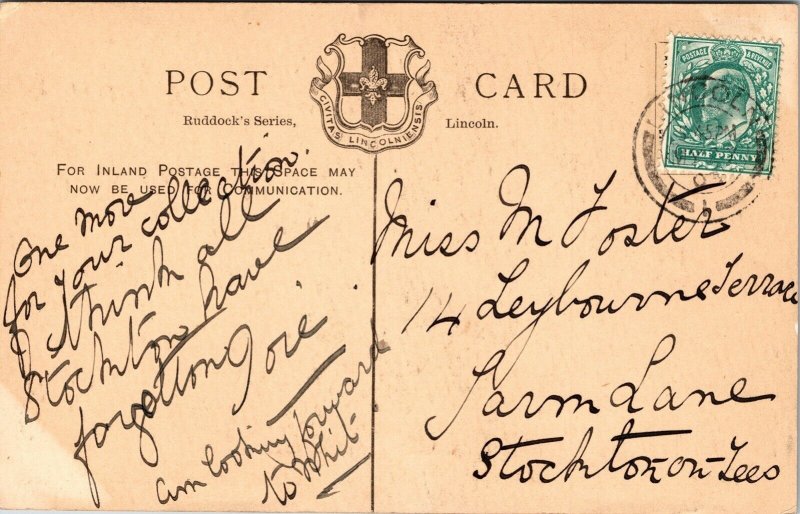 POST CARD
Ruddock's Series, Lincoln.
CIVITAS LINCOLNIENSIS
FOR INLAND POSTAGE THIS SPACE MAY
NOW BE USED FOR COMMUNICATION.
POSTAGE & REVENUE
HALF PENNY
LINCOLN
One more
for your collection.
I think all
Stockton have
forgotton
am looking forward
to Whit-
Miss M Foster
14 Leybourne Terrace
Yarm Lane
Stockton-on-Tees